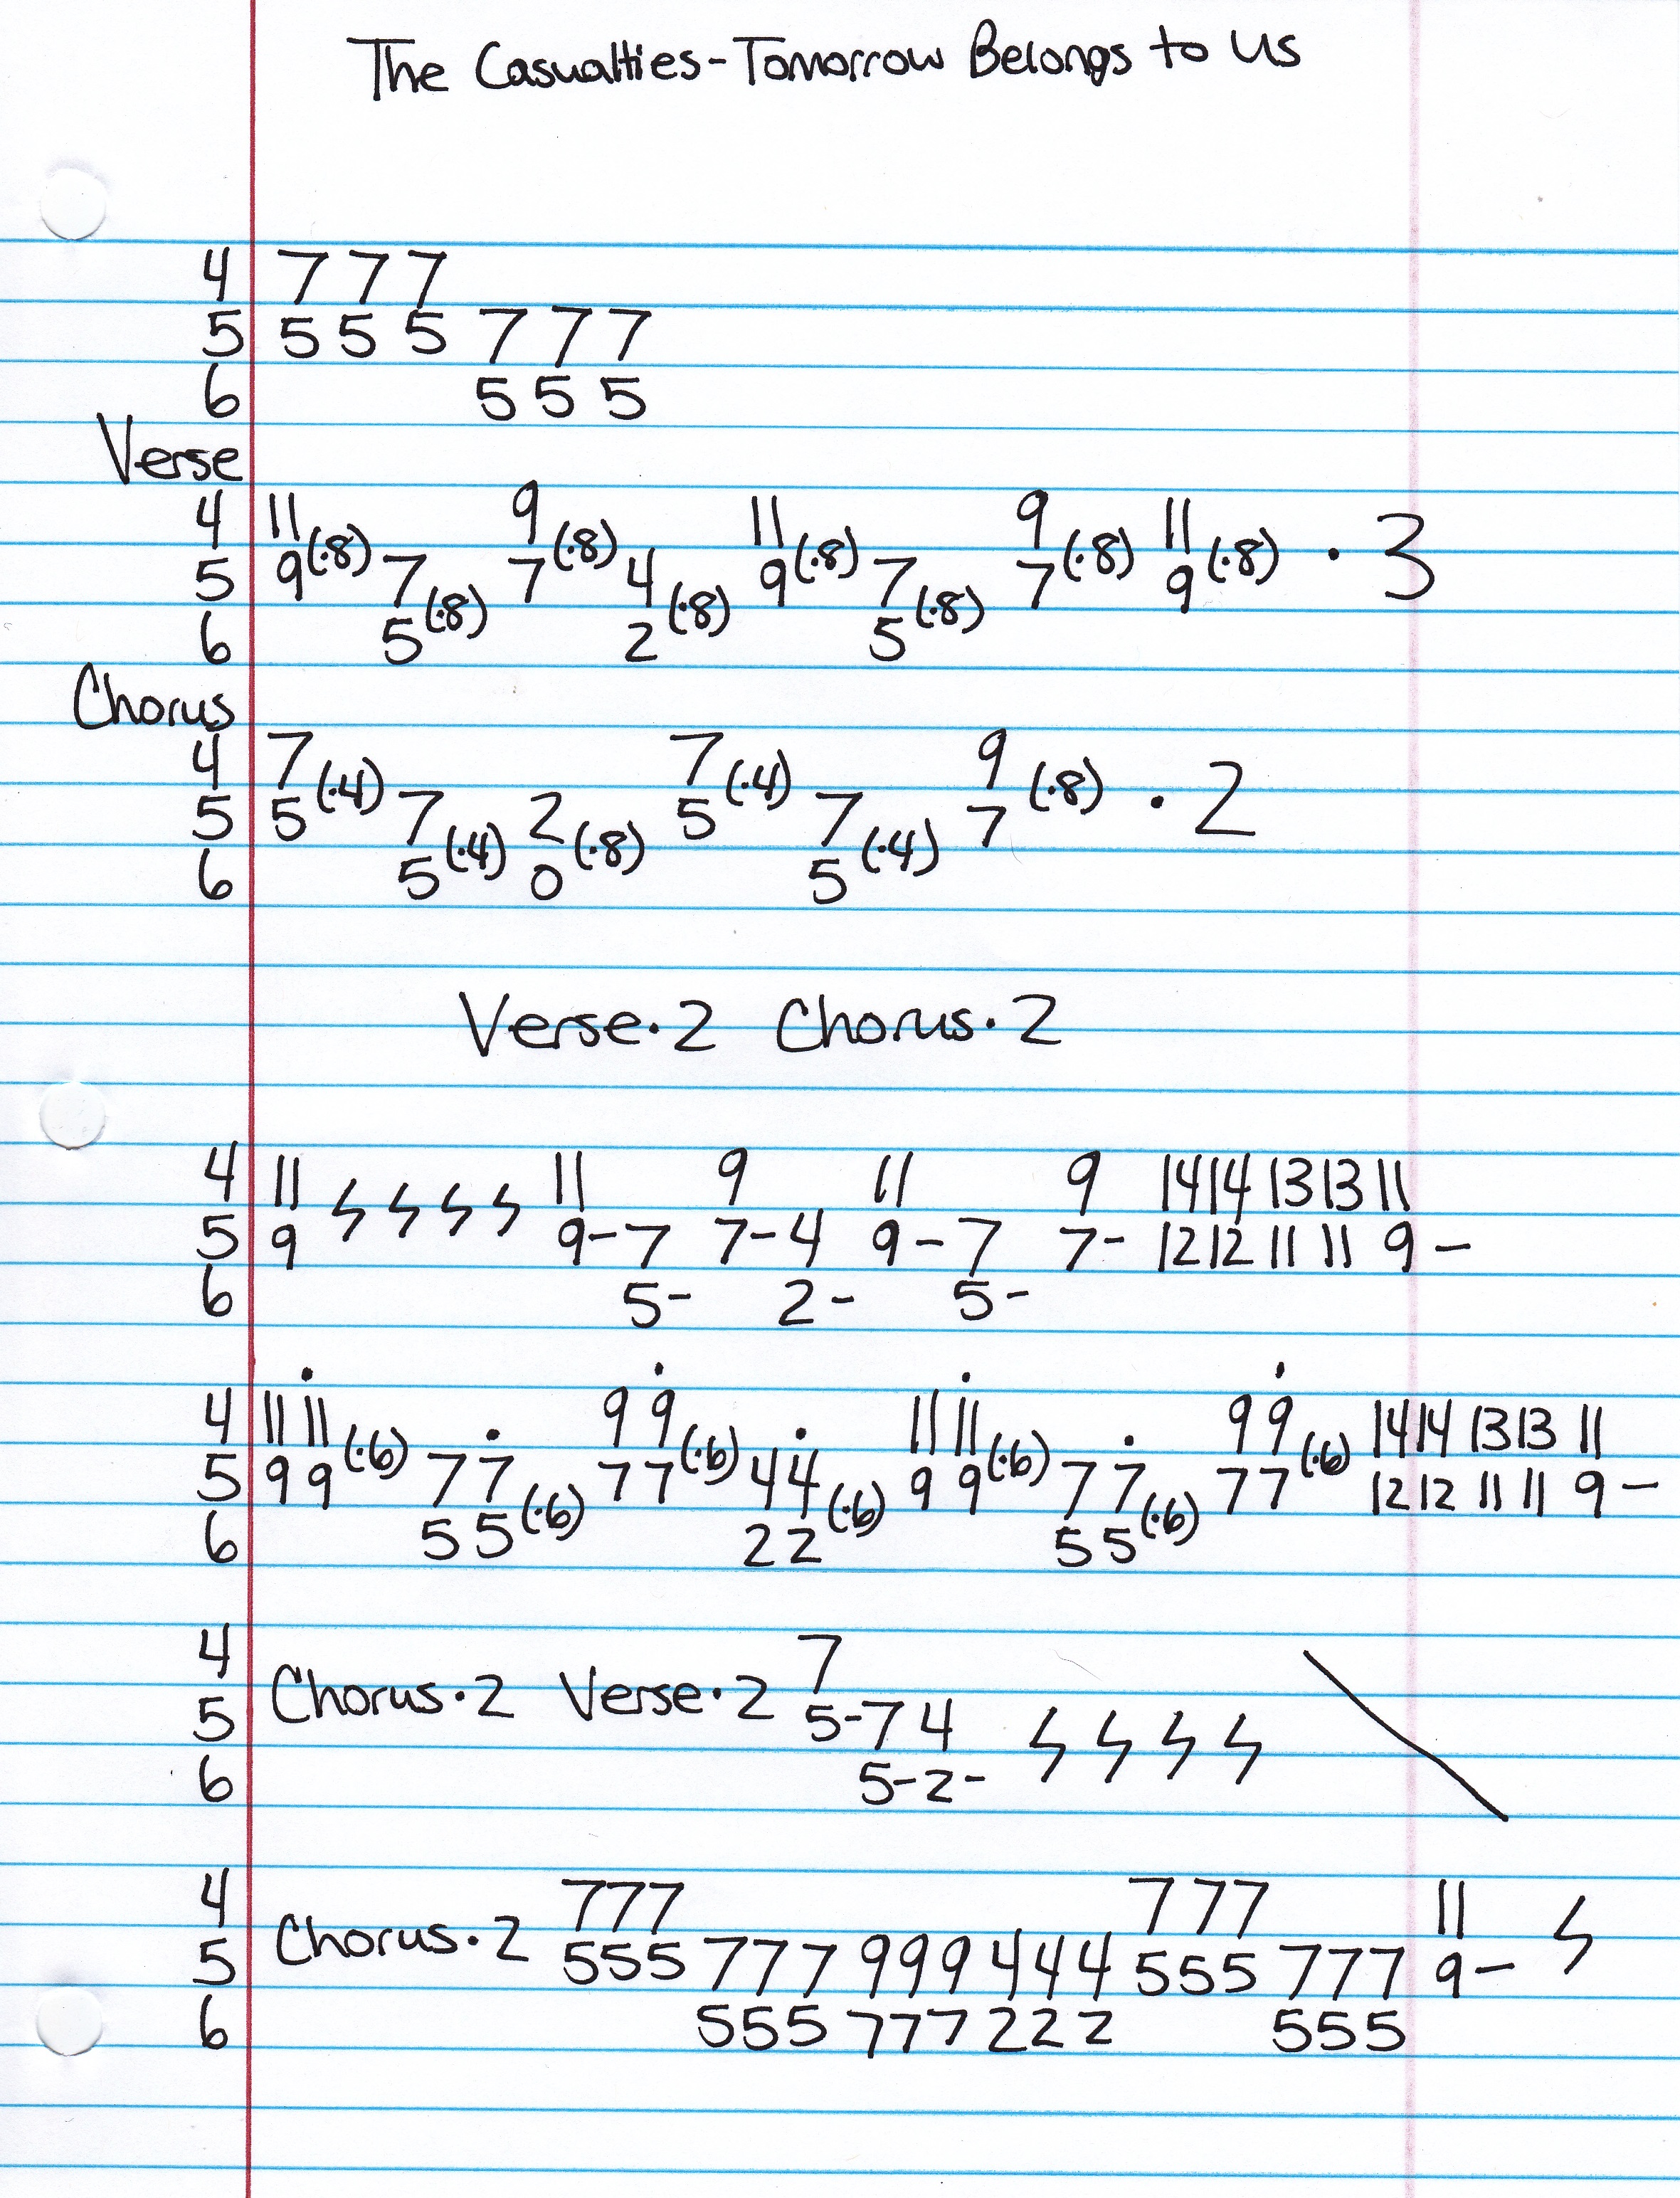 The Casualties-Tomorrow Belongs to Us
4 7 7 7
5 5 5 5 7 7 7
6 5 5 5
Verse
4 11 9 11 9 11
5 9(·8) 7 7(·8) 4 9(·8) 7 7(·8) 9(·8) · 3
6 5(·8) 2(·8) 5(·8)
Chorus
4 7 7 9
5 5(·4) 7 2 5(·4) 7 7(·8) · 2
6 5(·4) 0(·8) 5(·4)
Verse·2 Chorus·2
4 11 11 9 11 9 14 14 13 13 11
5 9 9-7 7-4 9-7 7- 12 12 11 11 9 -
6 5- 2- 5-
4 11 11 9 9 11 11 9 9 14 14 13 13 11
5 9 9(·6) 7 7 7 7(·6) 4 4 9 9(·6) 7 7 7 7(·6) 12 12 11 11 9 -
6 5 5(·6) 2 2(·6) 5 5(·6)
4 7
5 Chorus·2 Verse·2 5-7 4
6 5-2-
4 7 7 7 7 7 7 11
5 Chorus·2 5 5 5 7 7 7 9 9 9 4 4 4 5 5 5 7 7 7 9-
6 5 5 5 7 7 7 2 2 2 5 5 5